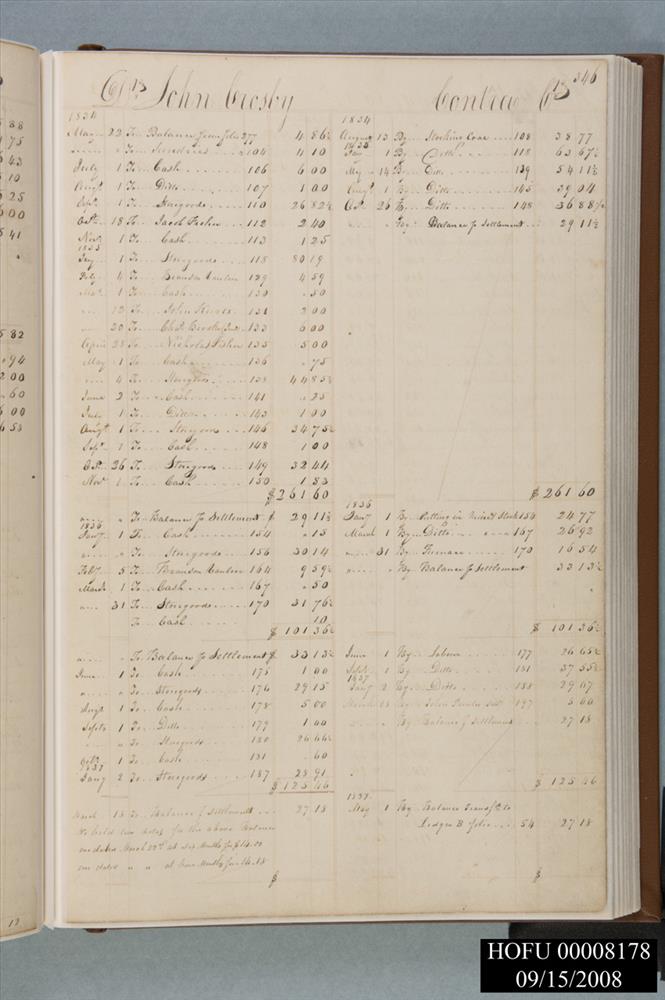 Drs John Crosby
1834
May 22 To Balance from folio 277 4 86½
" To Sundries 104 4 10
July 1 To Cash 106 6 00
Augt 1 To Ditto 107 1 00
Sept 1 To Storegoods 110 26 82½
Octr 18 To Jacob Fisher 112 2 40
Novr 1 To Cash 113 1 25
1835
Jany 1 To Storegoods 118 80 19
Feby 4 To 129 4 59
Mar 1 To Cash 130 50
12 To John 131 2 00
20 To Chas 133 6 00
April 28 To Nicholas Fisher 135 5 00
May 1 To Cash 136 75
4 To Storegoods 138 44 85½
June 2 To Cash 141 25
July 1 To Ditto 143 1 00
Augt 1 To Storegoods 146 34 75½
Sept 1 To Cash 148 1 00
Oct 26 To Storegoods 149 32 44
Novr 1 To Cash 150 1 83
$ 261 60
" To Balance Settlement $ 29 11½
1836
Jany 1 To Cash 154 15
" To Storegoods 156 30 14
Feby 5 To 164 9 59½
March 1 To Cash 167 50
" 31 To Storegoods 170 31 76½
To Cash 10
$ 101 36½
" To Balance Settlement $ 33 13½
June 1 To Cash 175 1 00
" To Storegoods 176 29 15
Augt 1 To Cash 178 5 00
Septr 1 To Ditto 179 1 00
" To Storegoods 180 26 66½
Octr 1 To Cash 181 60
1837
Jany 2 To Storegoods 187 28 91
$ 125 46
March 18 To Balance Settlement 27 18
We hold two notes for the above Balance
one dated March 22d at Six Months for $14.00
one dated " " at Months for 14.18
$
Contra Crs 346
1834
August 13 By Stocking Coal 108 38 77
1835
Jany 1 By Ditto 118 63 67½
May 14 By Ditto 139 54 11½
Augt 1 By Ditto 145 39 04
Oct 26 By Ditto 148 36 88½
" By Balance Settlement 29 11½
$ 261 60
1836
Jany 1 By Putting in Stock 154 24 77
March 1 By Ditto 167 26 92
" 31 By Furnace 170 16 54
" By Balance Settlement 33 13½
$ 101 36½
June 1 By Labour 177 26 65½
Septr 1 By Ditto 181 37 55½
1837
Jany 2 By Ditto 188 29 07
March By John 197 5 00
" By Balance Settlement 27 18
$ 125 46
1837
May 1 By Balance Transfd to
Ledger B folio 54 27 18
$
HOFU 00008178
09/15/2008